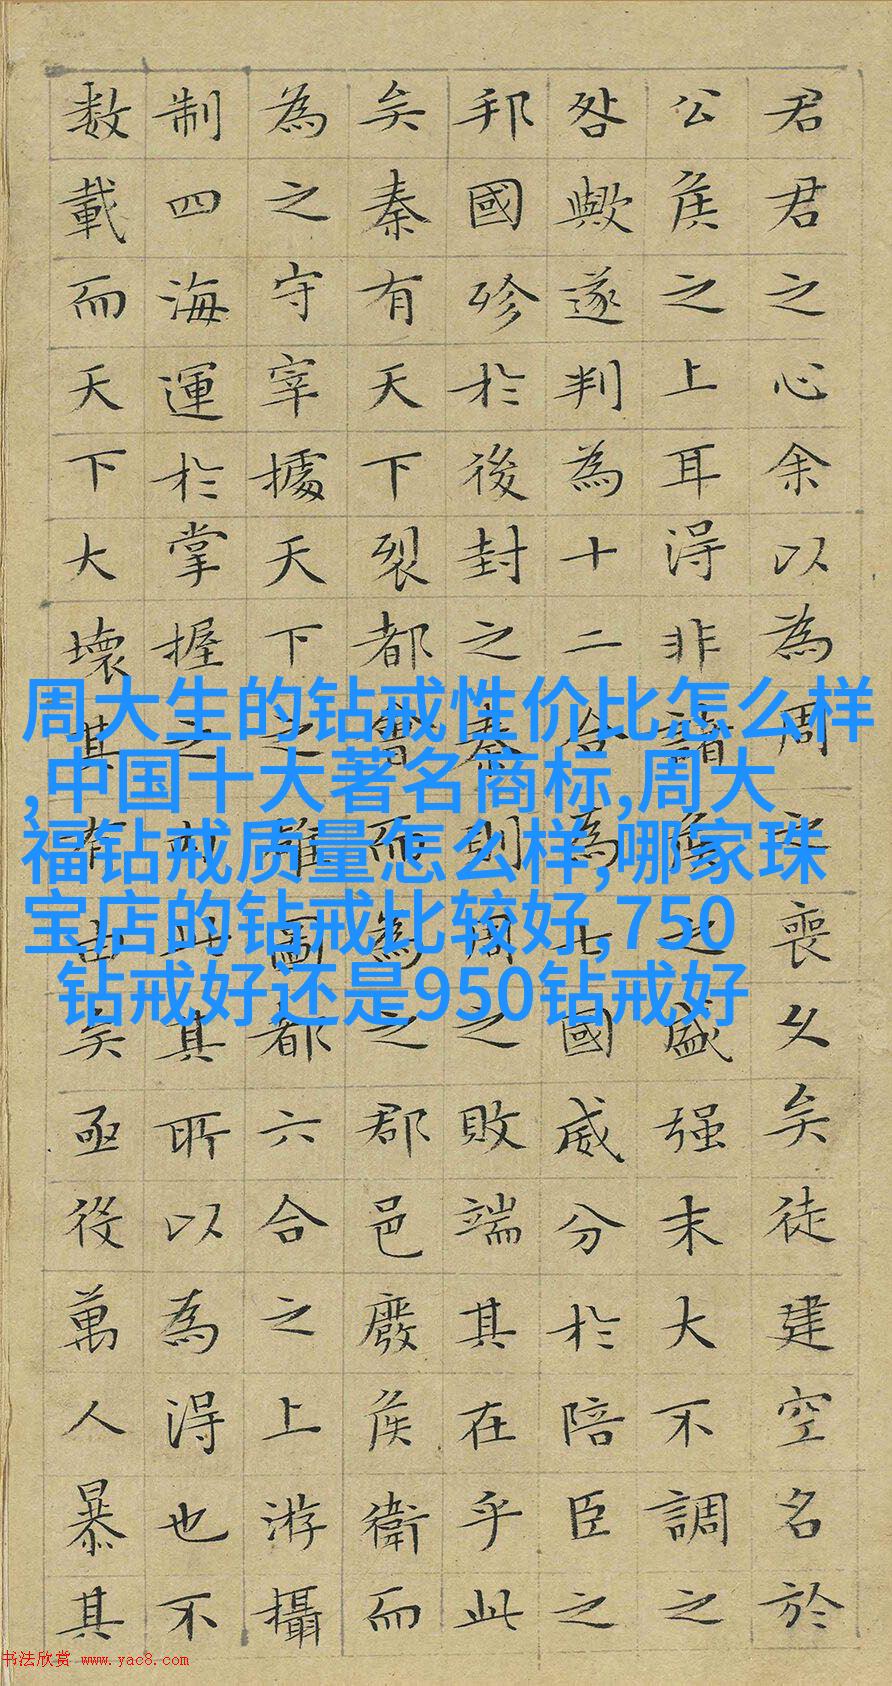 君君之心余以為周之喪久矣徒建空名於
公侯之上耳得非諸侯之盛强末大不調之
咎歟遂判為十二合為七國威分於陪臣之
邦國殄於後封之秦則周之敗端其在乎此
矣秦有天下裂都會而為之郡邑廢侯衛而
為之守宰據天下之雄圖都六合之上游攝
制四海運於掌握之內此其所以為得也不
数載而天下大壞其有由矣亟役萬人暴其
周大生的钻戒性价比怎么样
,中国十大著名商标,周大
福钻戒质量怎么样,哪家珠
宝店的钻戒比较好,750
钻戒好还是950钻戒好
书法欣赏 www.yac8.com